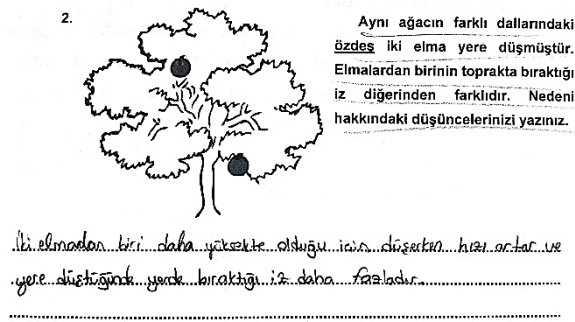 2.
Aynı ağacın farklı dallarındaki
özdeş iki elma yere düşmüştür.
Elmalardan birinin toprakta bıraktığı
iz diğerinden farklıdır. Nedeni
hakkındaki düşüncelerinizi yazınız.
İki elmadan biri daha yüksekte olduğu için düşerken hızı artar ve
yere düştüğünde yerde bıraktığı iz daha fazladır.